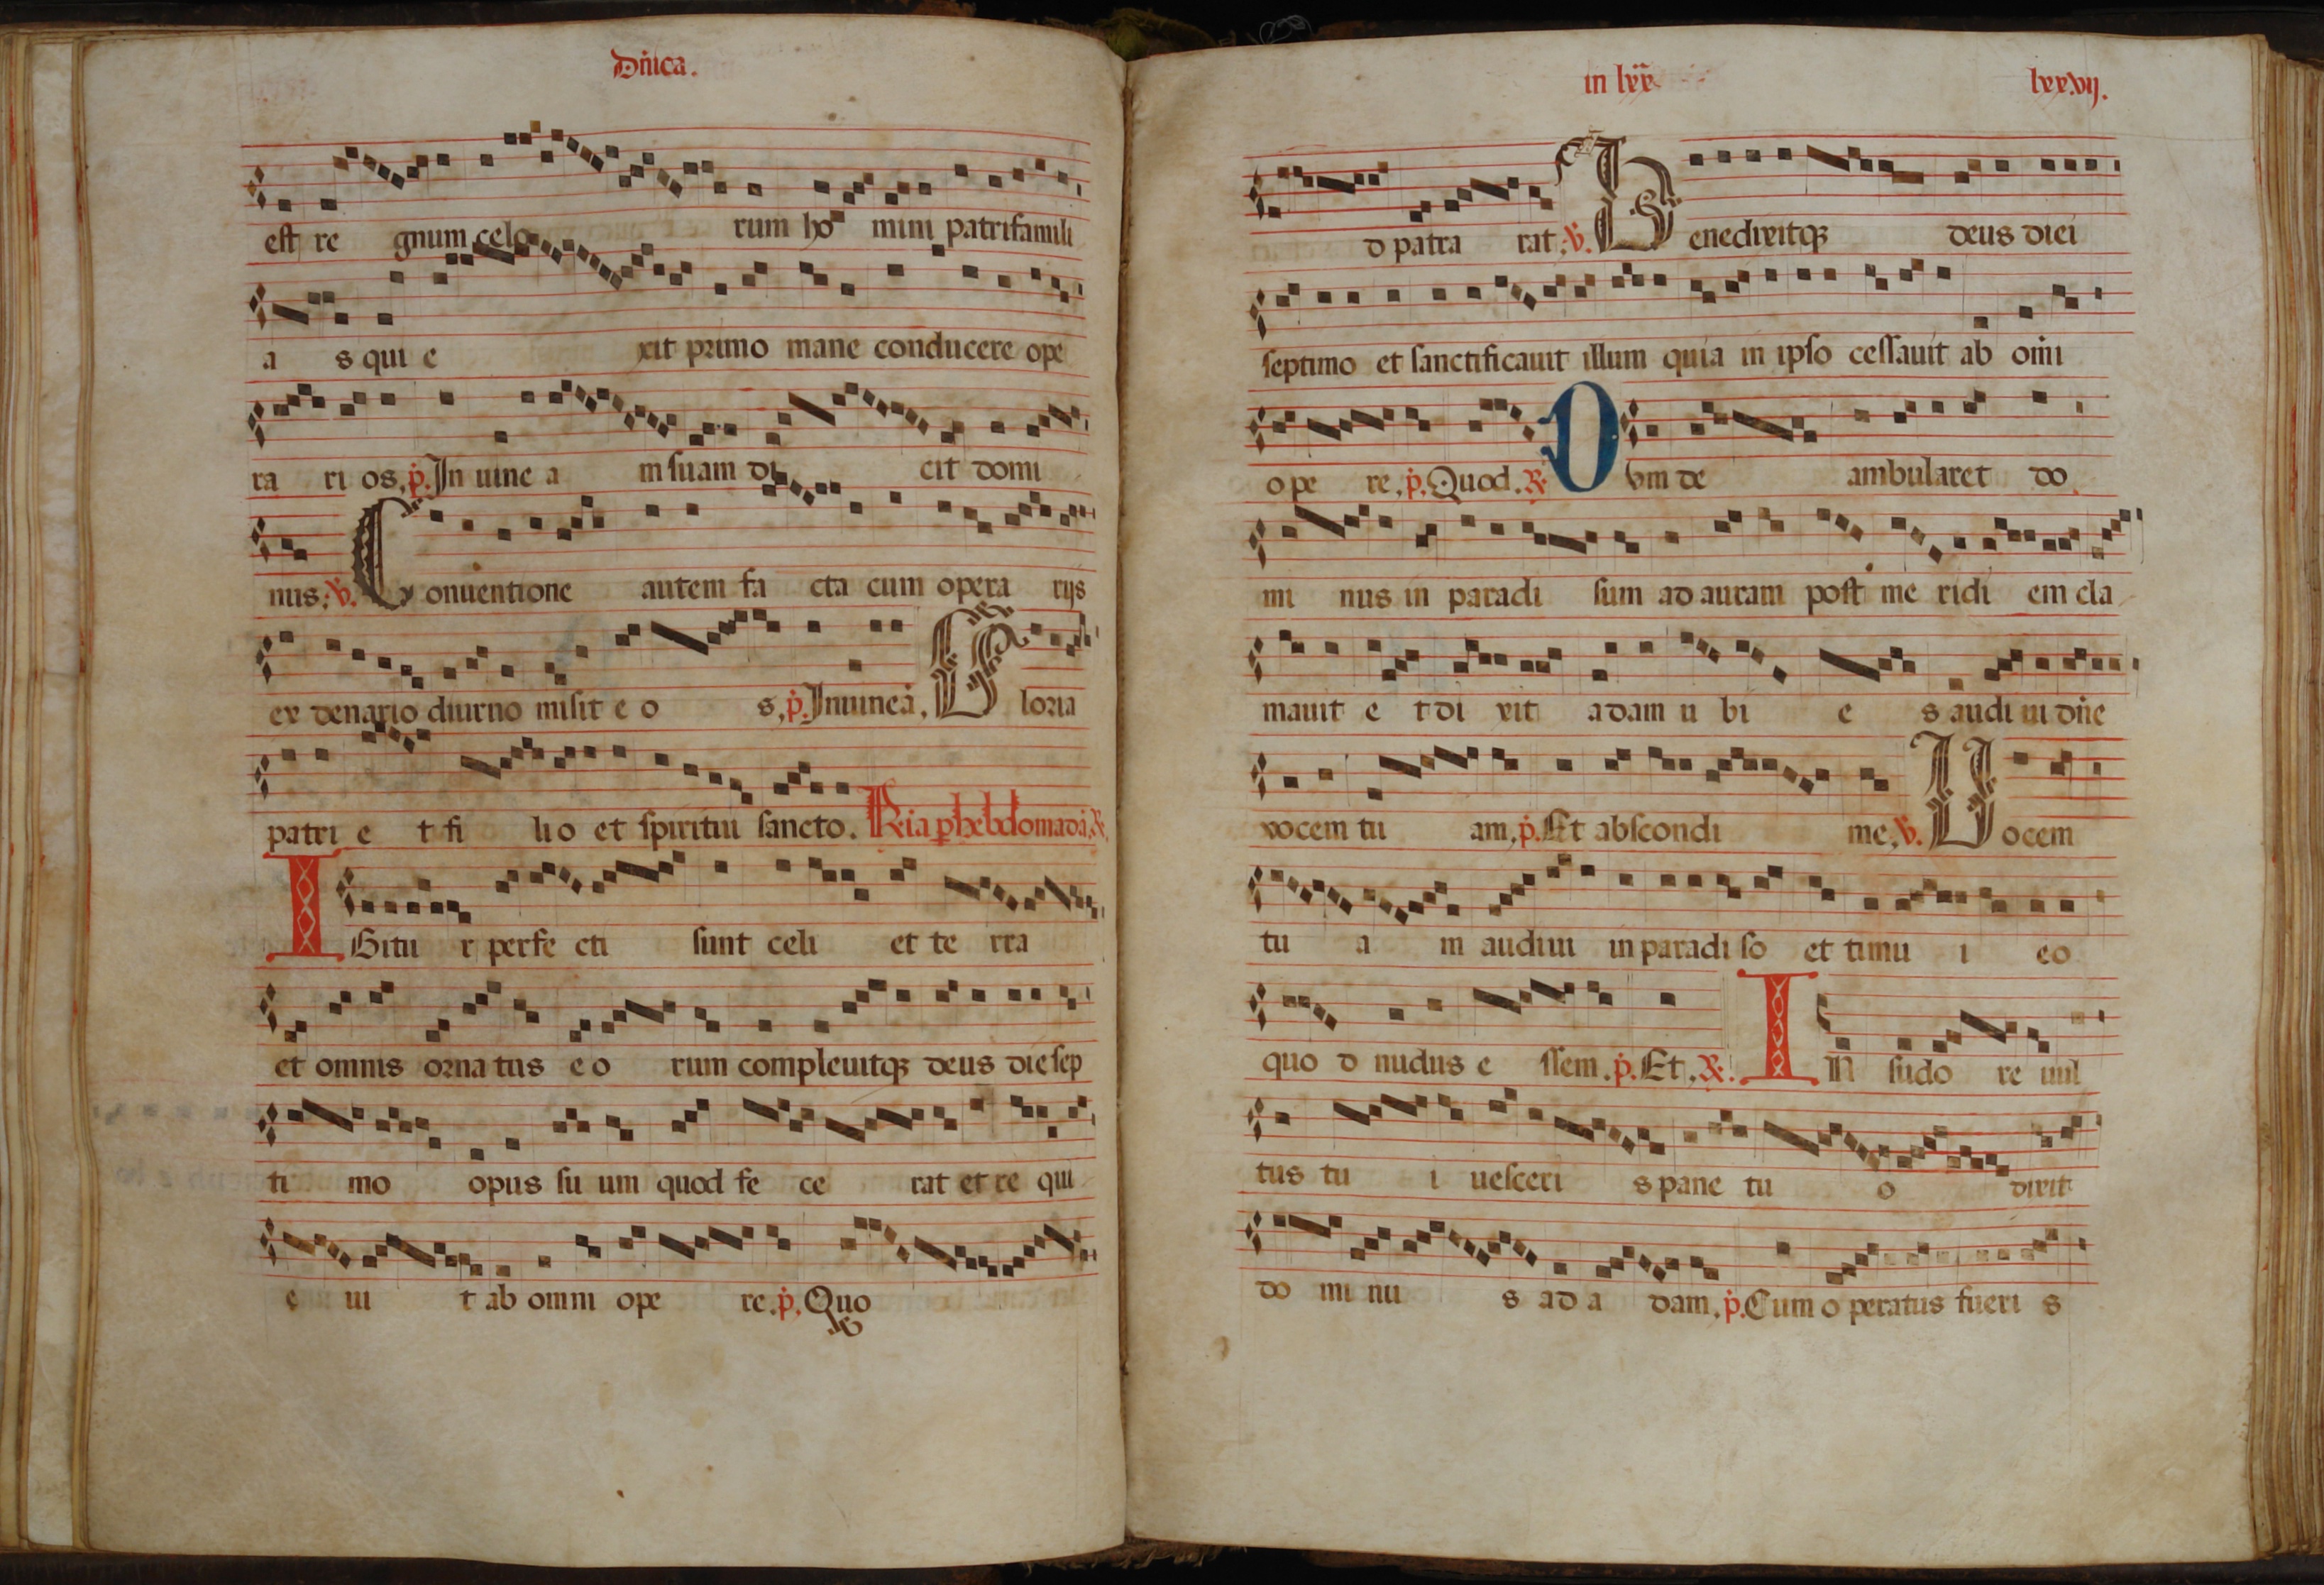 Dn̄ica.
est re gnum celo rum ho mini patrifamili
a s qui e xit primo mane conducere ope
ra ri os. p̄. In uine a m suam di cit domi
nus. v̄. Conuentione autem fa cta cum opera rijs
ex denario diurno misit e o s. p̄. In uineā. Gloria
patri e t fi li o et spiritui sancto. Ria p hebdomadā. ℟.
IGitu r perfe cti sunt celi et te rra
et omnis orna tus e o rum compleuitqꝫ deus die sep
ti mo opus su um quod fe ce rat et re qui
e ui t ab omni ope re. p̄. Quo
in lxx̄ lxxvij.
d patra rat. v̄. Benedixitqꝫ deus diei
septimo et sanctificauit illum quia in ipso cessauit ab om̄i
o pe re. p̄. Quod. ℟. Dvm de ambularet do
mi nus in paradi sum ad auram post me ridi em cla
mauit e t di xit adam u bi e s audi ui dn̄e
vocem tu am. p̄. Et abscondi me. v̄. Uocem
tu a m audiui in paradi so et timu i eo
quo d nudus e ssem. p̄. Et. ℟. IN sudo re uul
tus tu i uesceri s pane tu o dixit
do mi nu s ad a dam. p̄. Cum o peratus fueri s